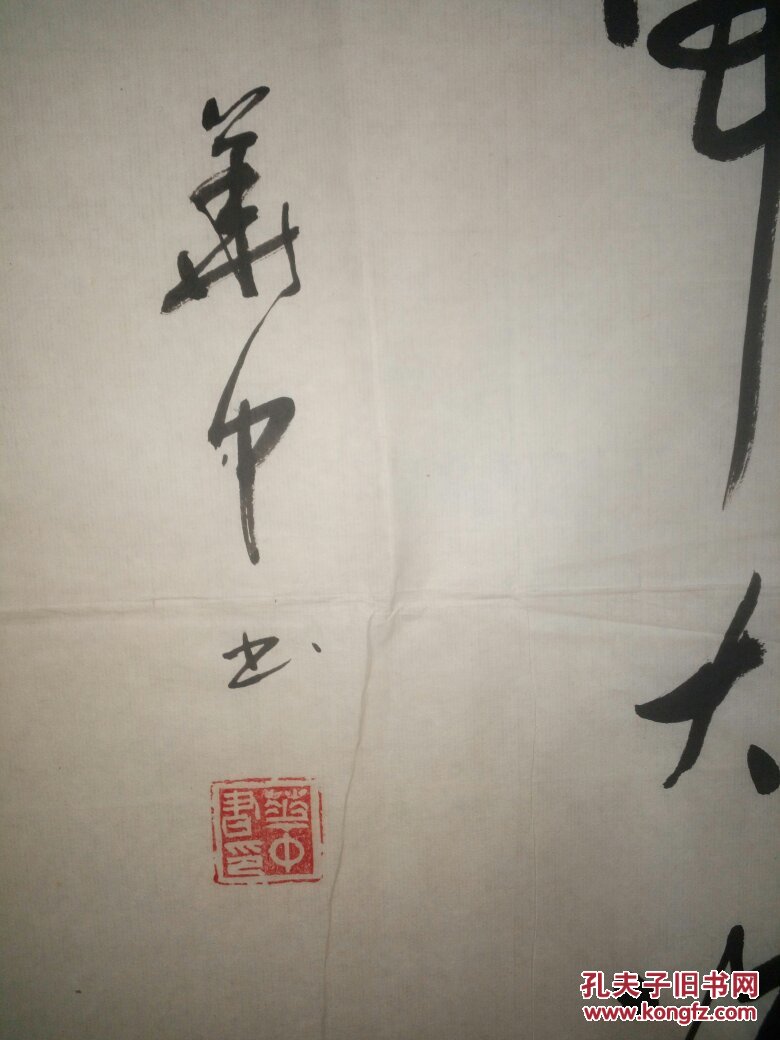 大
華中书
華中書印
孔夫子旧书网
www.kongfz.com